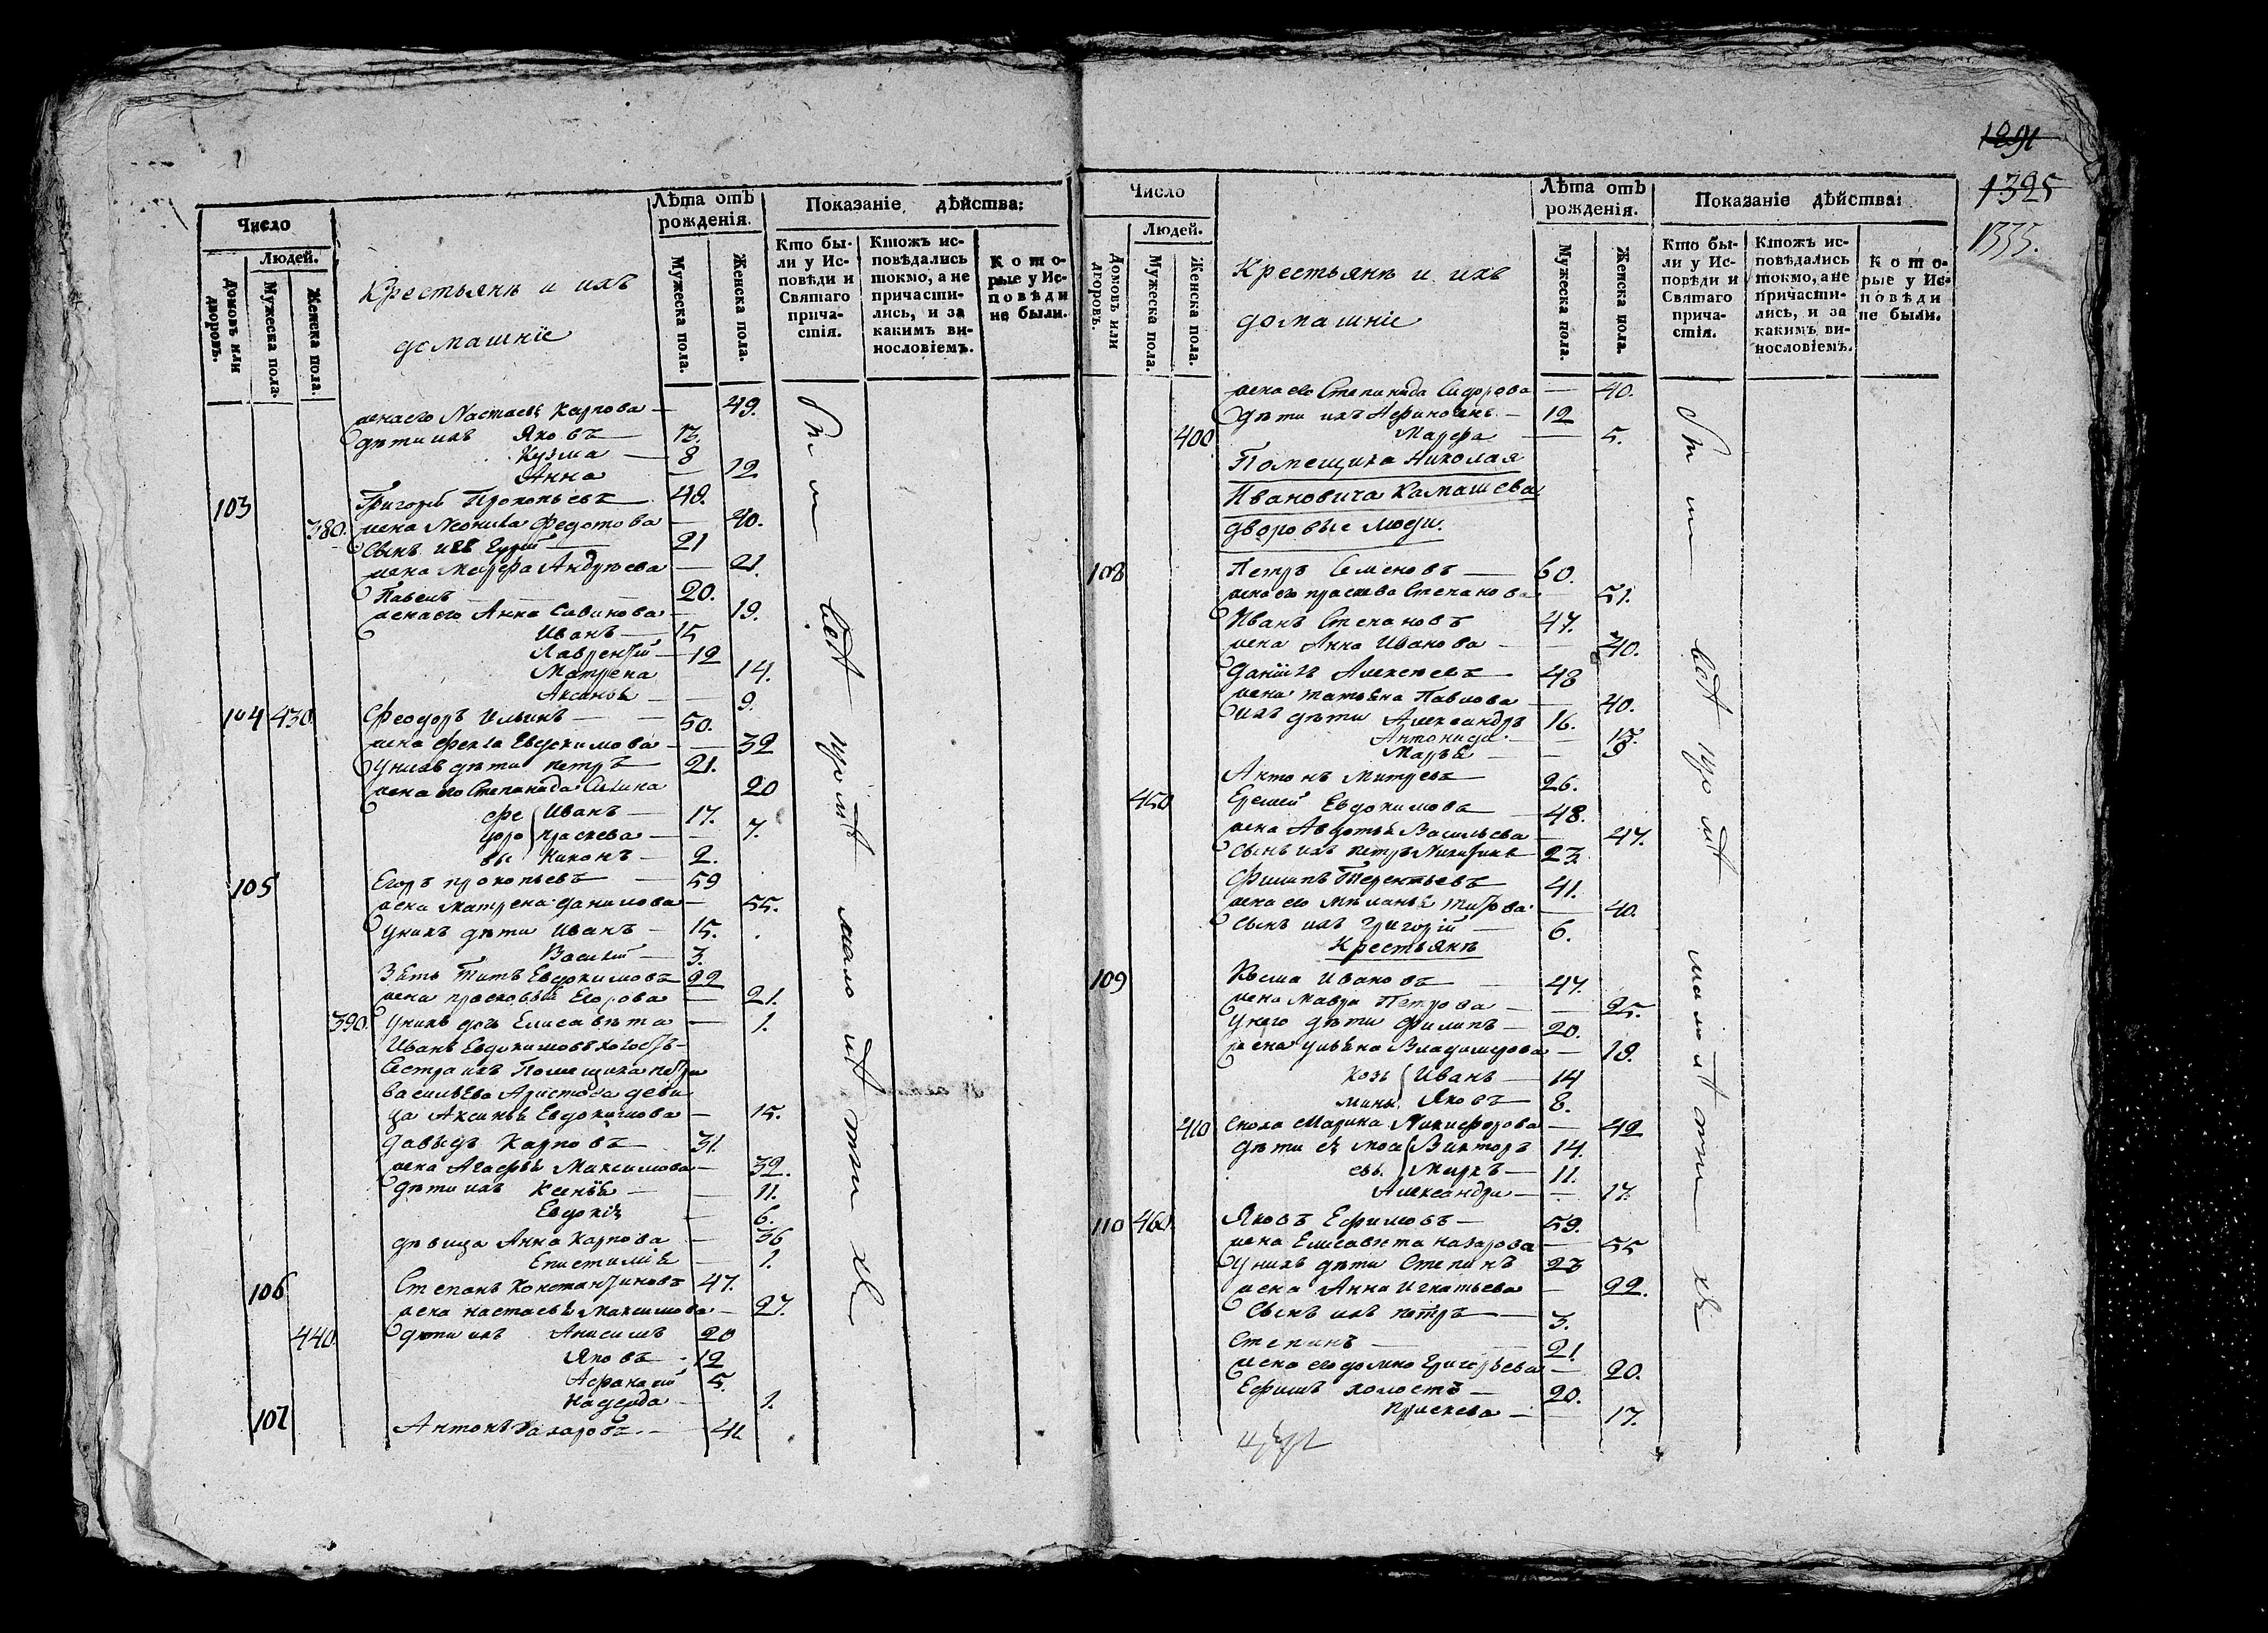 1291
1395
1335.
Число
Людей.
Домовъ или дворовъ.
Мужеска пола.
Женска пола.
Крестьянѣ и ихъ
домашніе
Лѣта отъ рожденія.
Мужеска пола.
Женска пола.
Показаніе дѣйства:
Кто бы-
ли у Ис-
повѣди и
Святаго
прича-
стія.
Ктожъ ис-
повѣдались
токмо, а не
причасти-
лись, и за
какимъ ви-
нословіемъ.
Кото-
рые у Ис-
повѣди
не были.
жена его Настасья Карпова — 49.
дѣти ихъ Яковъ — 13.
Кузма — 8
Анна — 12
103 Григорій Прокопьевъ 48.
380. жена Леонила Федотова — 40.
Сынъ ихъ 21
жена Андреева — 21.
Павелъ — 20.
жена его Анна Савинова — 19.
Иванъ — 15
Лаврентій — 12
Матрена — 14.
Аксинья — 9.
104 430. Феодоръ Ильинъ — 50.
жена Фекла Евдокимова — 32
у нихъ дѣти Петръ — 21.
жена его Степанида 20
Фе Иванъ — 17.
доро Праскева — 7.
вы Никонъ — 2.
105 Егоръ Прокопьевъ — 59
жена Матрена Данилова — 55.
у нихъ дѣти Иванъ — 15.
Василій — 3.
Зять Титъ Евдокимовъ 22
жена Прасковья Егорова — 21.
390. у нихъ дочь Елисавѣта — 1.
Иванъ Евдокимовъ
Сестра ихъ Помещика Петра
Васильева Аристова деви
ца Аксинья Евдокимова — 15.
Давыдъ Карповъ 31.
жена Агафья Максимова — 32.
дѣти ихъ Ксенья — 11.
Евдокія — 6.
дѣвица Анна Карпова — 36
Епистимія — 1.
106 Степанъ Константиновъ 47.
жена Настасья Максимова — 27.
440. дѣти ихъ Анисимъ 20
Яковъ — 12
Афанасій 5.
Надежда — 1.
107 Антонъ Захаровъ —
Число
Людей.
Домовъ или дворовъ.
Мужеска пола.
Женска пола.
Крестьянѣ и ихъ
домашніе
Лѣта отъ рожденія.
Мужеска пола.
Женска пола.
Показаніе дѣйства:
Кто бы-
ли у Ис-
повѣди и
Святаго
прича-
стія.
Ктожъ ис-
повѣдались
токмо, а не
причасти-
лись, и за
какимъ ви-
нословіемъ.
Кото-
рые у Ис-
повѣди
не были.
жена его Степанида Сидорова — 40.
дѣти ихъ — 12
400 — 5.
Помещика Николая
Ивановича Камашева
дворовые люди.
108 Петръ Семеновъ — 60.
жена его Праскева Степанова 51.
Иванъ Степановъ 47.
жена Анна Иванова — 40.
Даніилъ Алексеевъ — 48
жена Татьяна Павлова — 40.
ихъ дѣти Александръ 16.
Антонида — 13.
Марья — 9
Антонъ Митревъ 26.
450 Еремей Евдокимовъ 48.
жена Авдотья Васильева — 47.
Сынъ ихъ Петръ 23.
Филипъ Терентьевъ 41.
жена его Меланья Титова — 40.
Сынъ ихъ Григорій — 6.
Крестьянѣ
109 Козма Ивановъ — 47.
жена Мавра Петрова — 25.
у него дѣти Филипъ — 20.
жена Ульяна Владимерова — 18.
Козь Иванъ — 14
мины Яковъ — 8.
410 сноха Марина Никифорова — 42
дѣти ея Мосе Викторъ 14.
евы. Маркъ — 11.
Александра — 17.
110 460. Яковъ Ефимовъ — 59.
жена Елисавѣта Назарова — 55
у нихъ дѣти Степанъ 23
жена Анна Игнатьева — 22.
Сынъ ихъ Петръ — 3.
Степанъ 21.
жена его Домна Григорьева — 20.
Ефимъ холостъ — 20.
Праскева — 17.